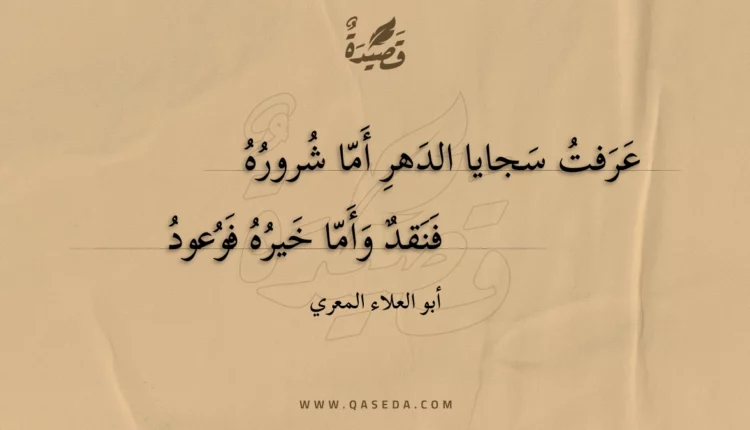 قَصِيْدَةٌ
عَرَفتُ سَجايا الدَهرِ أَمّا شُرورُهُ
فَنَقدٌ وَأَمّا خَيرُهُ فَوُعودُ
أبو العلاء المعري
WWW.QASEDA.COM